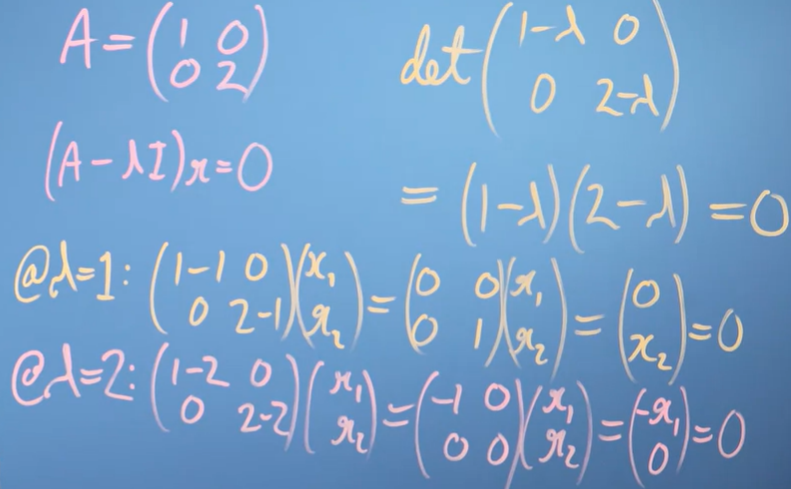 A = (1 0; 0 2)
det(1-λ 0; 0 2-λ)
(A - λI)x = 0
= (1-λ)(2-λ) = 0
@λ=1: (1-1 0; 0 2-1)(x₁; x₂) = (0 0; 0 1)(x₁; x₂) = (0; x₂) = 0
@λ=2: (1-2 0; 0 2-2)(x₁; x₂) = (-1 0; 0 0)(x₁; x₂) = (-x₁; 0) = 0